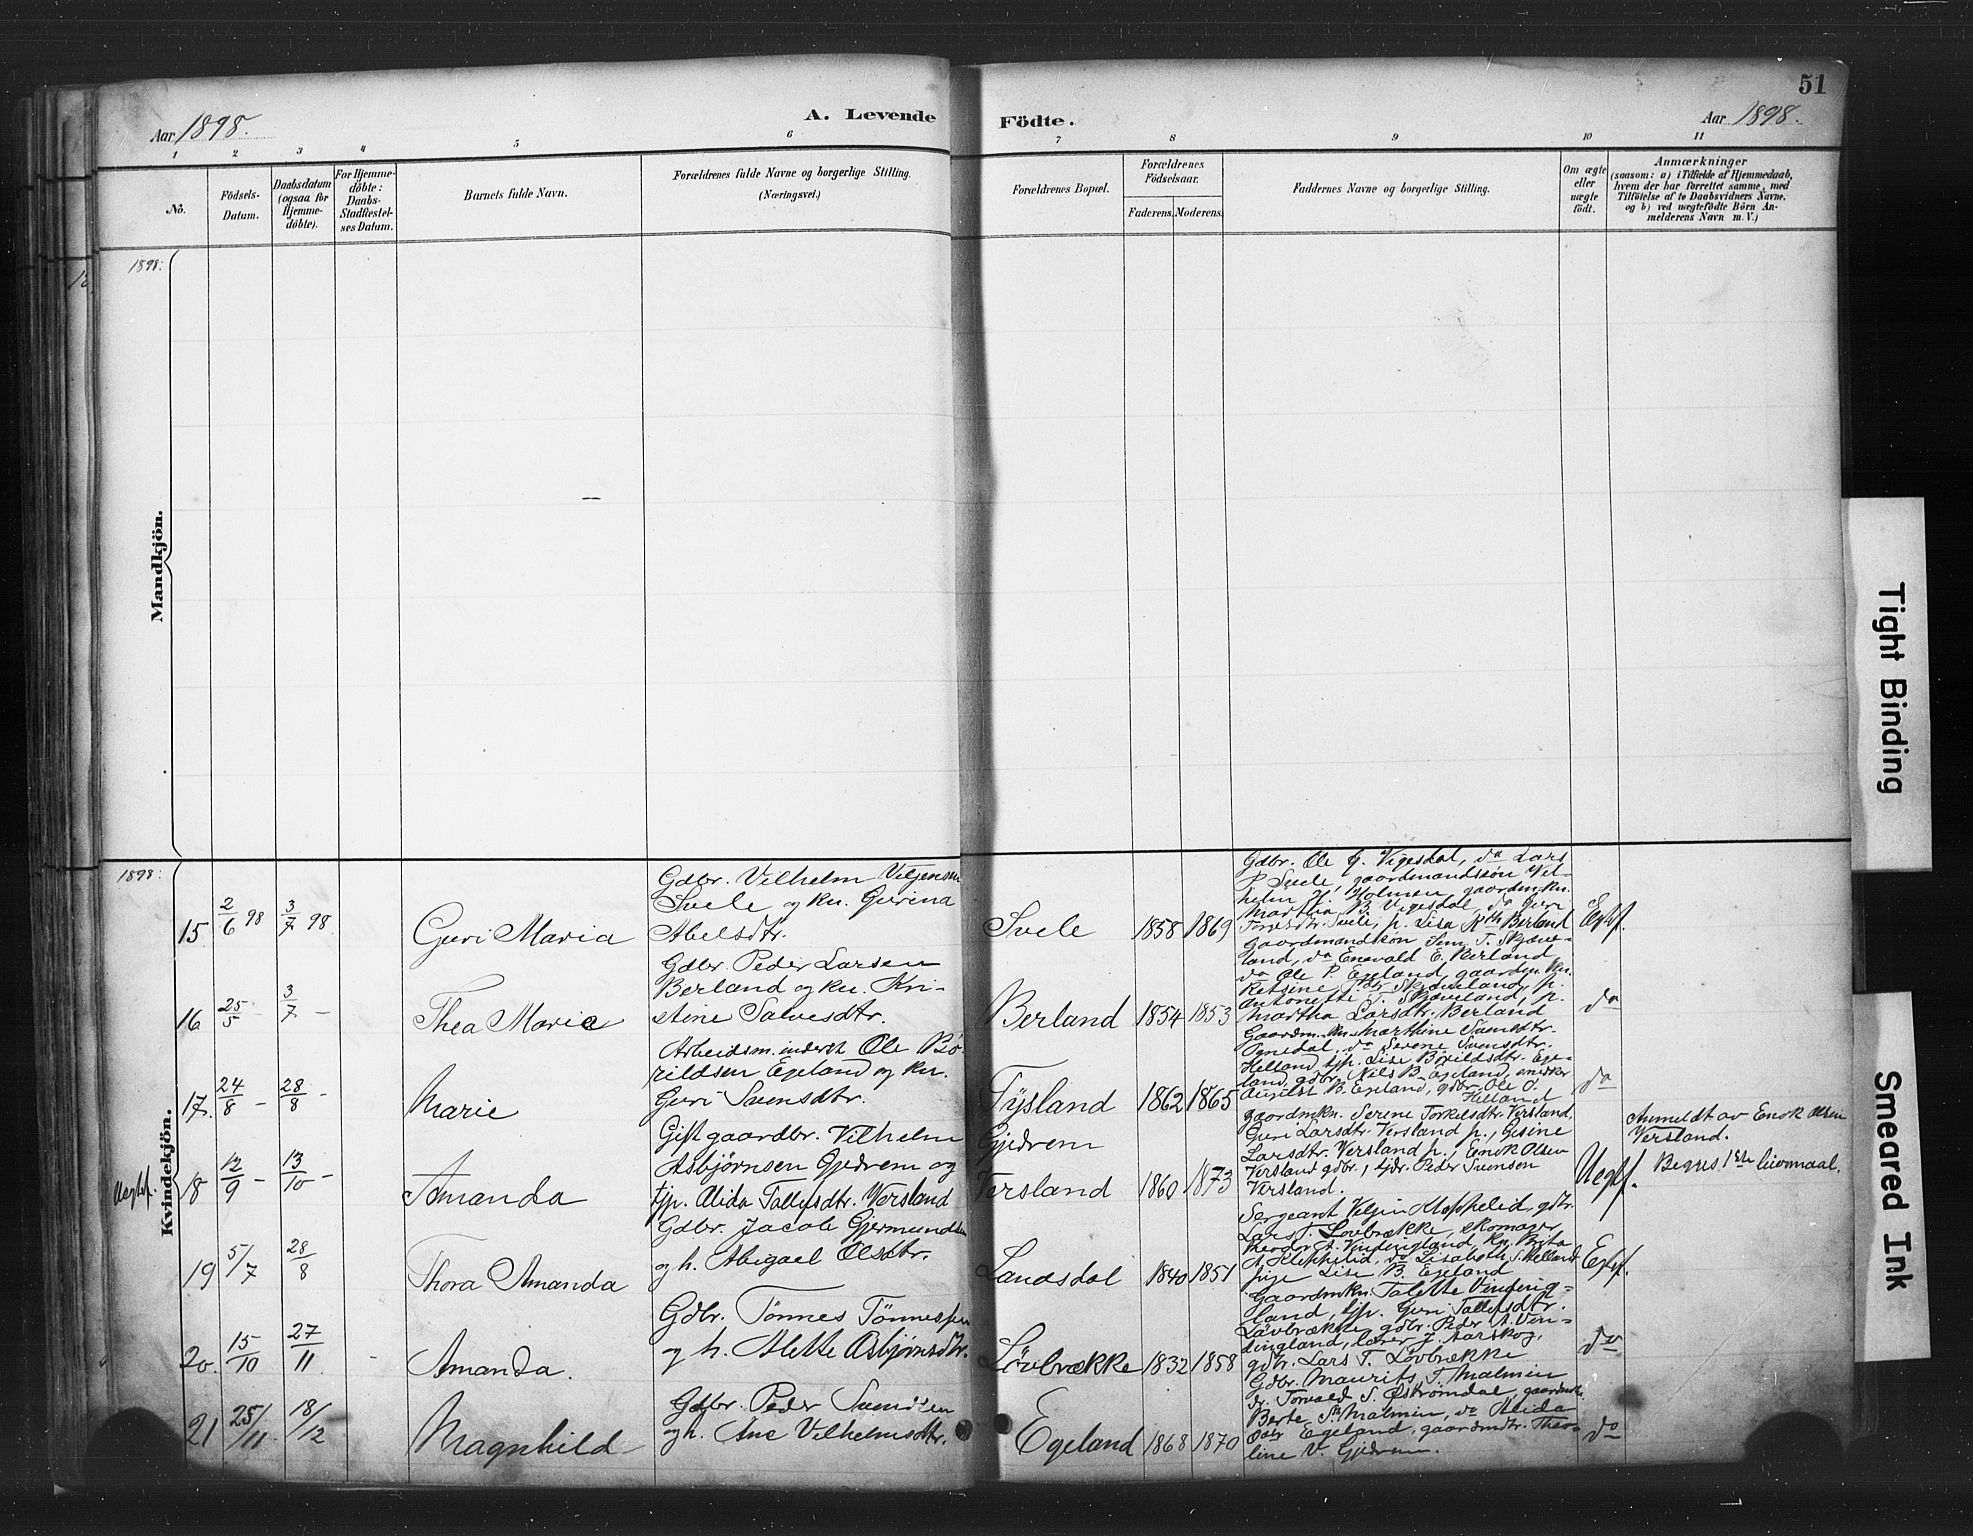 51
Aar 1898.
A. Levende Födte.
Aar 1898.
1 2 3 4 5 6 7 8 9 10 11
No.
Födsels-
Datum.
Daabsdatum
(ogsaa for
Hjemme-
döbte).
For Hjemme-
döbte:
Daabs-
Stadfæstel-
ses Datum.
Barnets fulde Navn.
Forældrenes fulde Navne og borgerlige Stilling.
(Næringsvei.)
Forældrenes Bopæl.
Forældrenes
Födselsaar.
Faderens. Moderens.
Faddernes Navne og borgerlige Stilling.
Om ægte
eller
uægte
födt.
Anmærkninger
(saasom: a) i Tilfælde af Hjemmedaab,
hvem der har forrettet samme, med
Tilföielse af to Daabsvidners Navne,
og b) ved uægtefödte Börn An-
melderens Navn m. V.)
1898:
Mandkjön.
—
1898:
Kvindekjön.
15 2/6 98 3/7 98 Guri Maria
Gdbr. Vilhelm Veljensen
Svele og ku. Gurina
Abelsdtr.
Svele 1858 1869
Gdbr. Ole G. Vigesdal, do Lars
P. Svele, gaardmandssön Vil-
helm H. Holmen, gaardm.kn.
Martha B. Vigesdal, do Guri
Torresdtr. Svele, p. Lisa Berland
Egtef.
16 25/5 – 3/7 – Thea Marie
Gdbr. Peder Larsen
Berland og ku. Kri-
stine Salvesdtr.
Berland 1854 1853
Gaardmandssön Sem T. Skjæve-
land, do Enevald E. Berland
do Ole P. Egeland, gaardm. kn.
Antonette T. Skjæveland, p.
Martha Larsdtr. Berland
do
17. 24/8 – 28/8 – Marie
Arbeidsm. inderst Ole Bö-
rildsen Egeland og ku.
Guri Svensdtr.
Tysland 1862 1865
Gaardm. kn. Marthine Svensdtr.
Ognedal, do Serene Svensdtr.
Helland, tjp. Lise Börildsdtr. Ege-
land, gdbr. Nils B. Egeland, snedker
August B. Egeland, gdbr. Ole O.
Helland
do
Uegtef. 18 12/9 – 13/10 – Amanda
Gift gaardbr. Vilhelm
Asbjørnsen Gjedrem og
tjp. Alida Tallefsdtr. Versland
Gjedrem
Versland 1860 1873
gaardmkn. Serine Torkelsdtr. Versland,
Guri Larsdtr. Versland p., Gesine
Larsdtr. Versland p., Enok Olsen
Versland gdbr., tjdr. Peder Svensen
Versland.
Uegtef.
Anmeldt av Enok Olsen
Versland.
Begges 1ste leiermaal.
19 5/7 28/8 Thora Amanda
Gdbr. Jacob Gjermundsen
og h. Abigael Olsdtr.
Landsdal 1840 1851
Sergeant Veljen Kleppelid, gdbr.
Lars T. Lovbrække, skomager
Theodor A. Vindingland, kn. Brita
A. Kleppelid, do Lisabeth S. Helland
pige Lise B. Egeland
Egtef.
20. 15/10 27/11 - Amanda.
Gdbr. Tönnes Tönnessen
og h. Alette Asbjørnsdtr.
Lövbrække 1832 1858
Gaardmkn. Talette Vinding-
land, tjp. Guri Tallefsdtr.
Lövbrække, gdbr. Peder A. Vin-
dingland, lærer J. Aarskog,
gdbr. Lars T. Lövbrække
do
21 25/11 18/12 Magnhild
Gdbr. Peder Svendsen
og h. Ane Vilhelmsdtr.
Egeland 1868 1870
Gdbr. Maurits T. Malmin
do. Torvald S. Øströmdal, gaardmkn.
Berte Malmin, do Alida
Egeland, gaardmdtr. Theo-
line V. Gjedrem.
do
Tight Binding
Smeared Ink